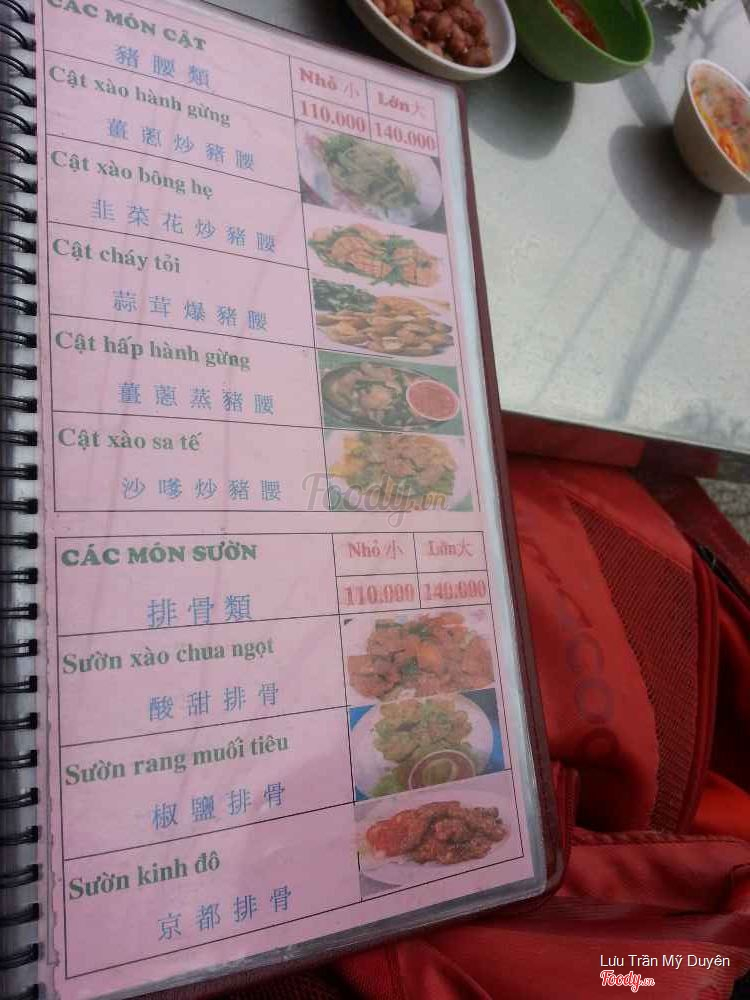 CÁC MÓN CẬT
豬腰類
Nhỏ 小 Lớn大
110.000 140.000
Cật xào hành gừng
薑蔥炒豬腰
Cật xào bông hẹ
韭菜花炒豬腰
Cật cháy tỏi
蒜茸爆豬腰
Cật hấp hành gừng
薑蔥蒸豬腰
Cật xào sa tế
沙嗲炒豬腰
Foody.vn
CÁC MÓN SƯỜN
排骨類
Nhỏ 小 Lớn大
110.000 140.000
Sườn xào chua ngọt
酸甜排骨
Sườn rang muối tiêu
椒鹽排骨
Sườn kinh đô
京都排骨
Lưu Trần Mỹ Duyên
Foody.vn